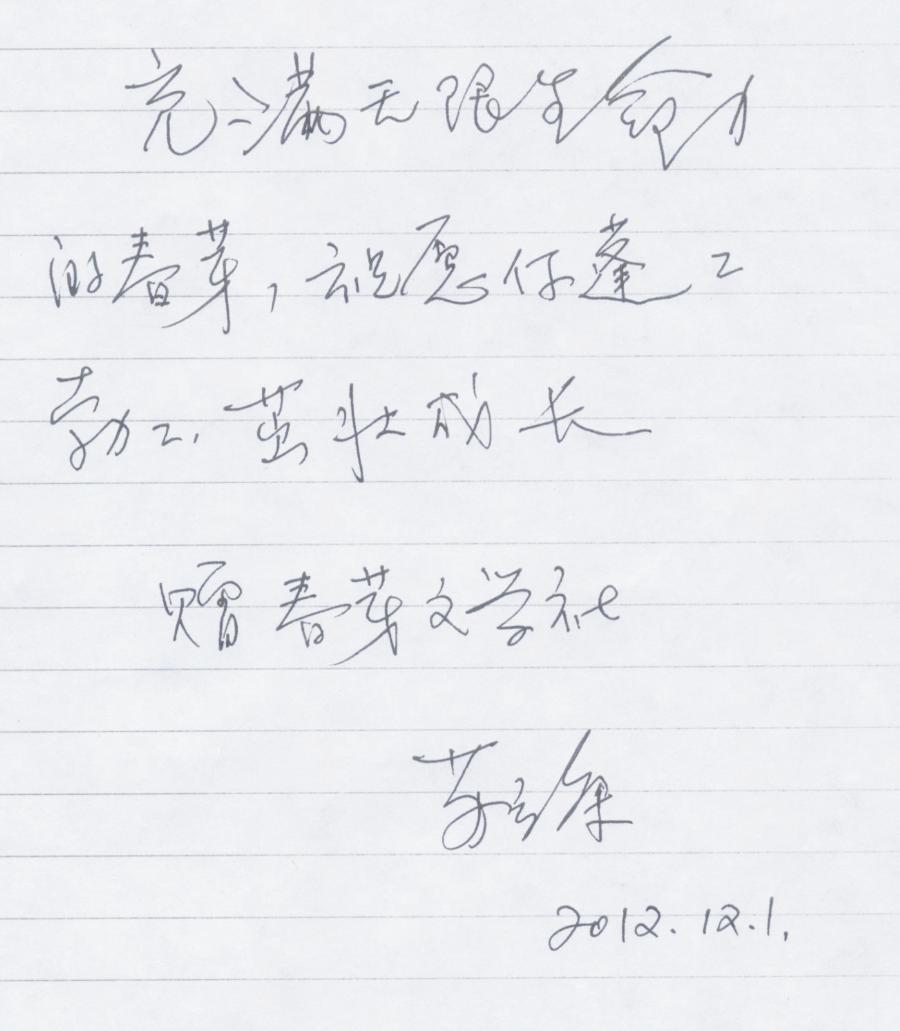 充满无限生命力
的春芽，祝愿你蓬〻
勃〻茁壮成长
赠春芽文学社
2012.12.1.